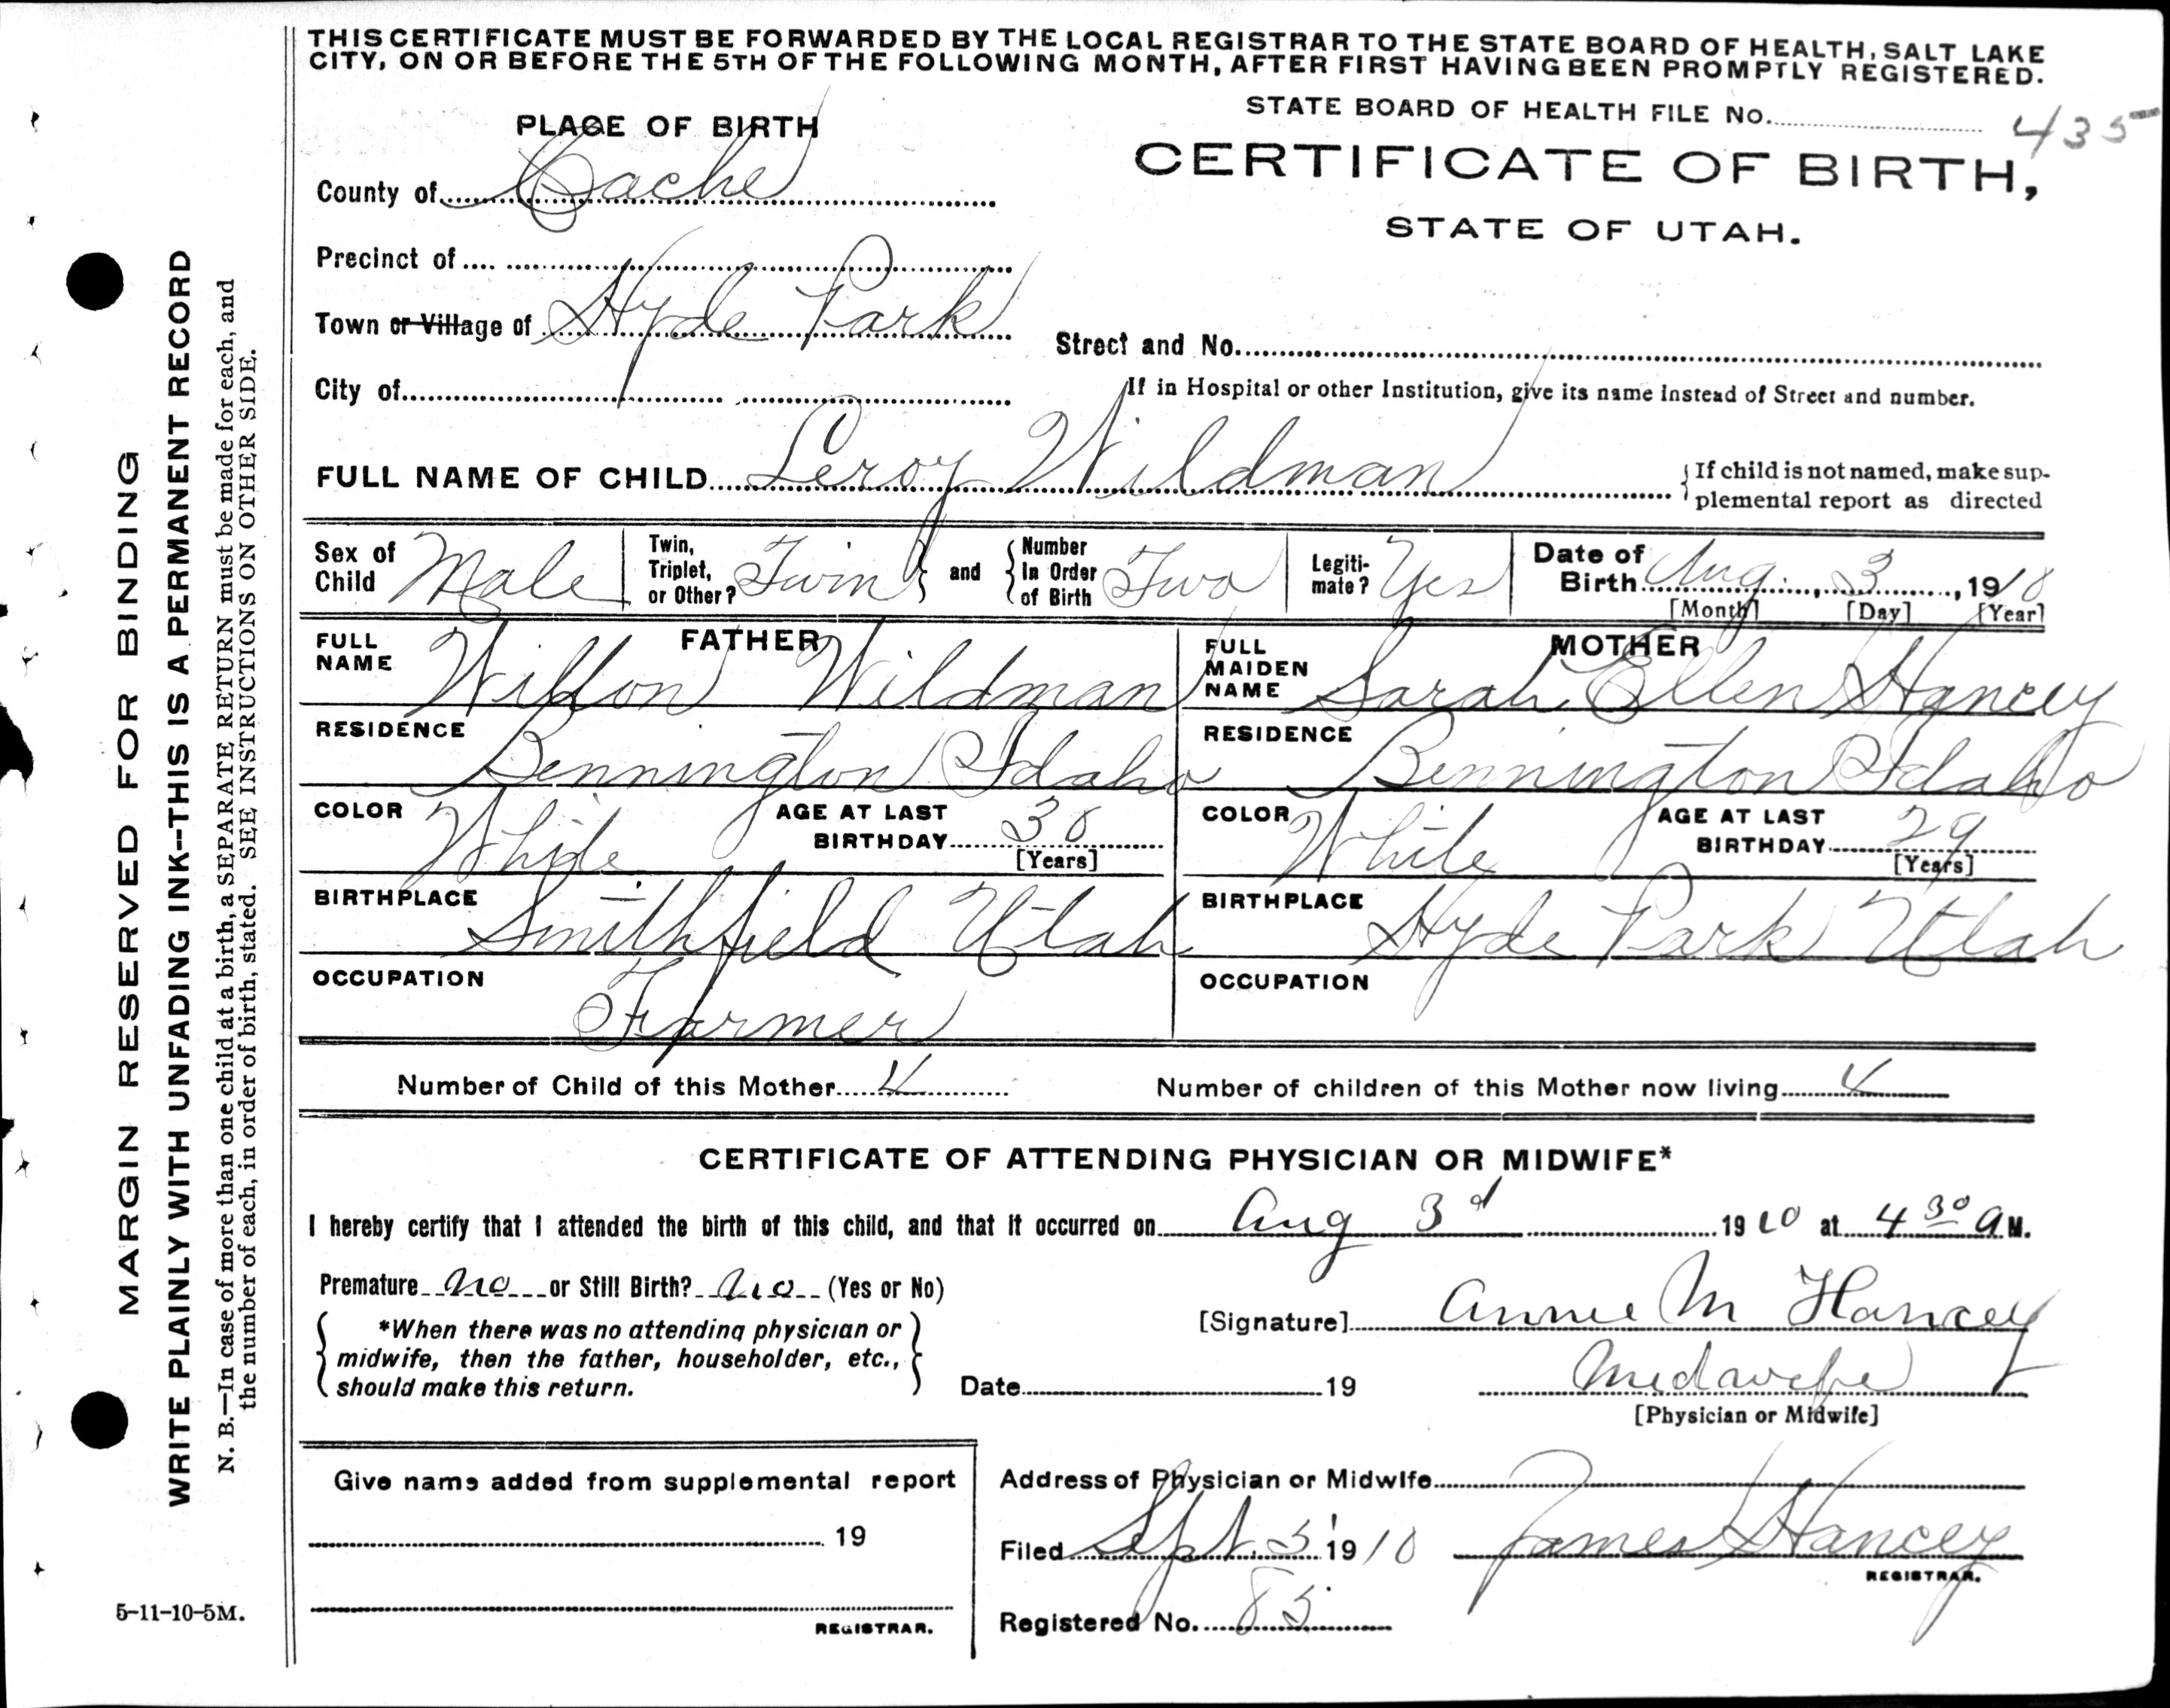 THIS CERTIFICATE MUST BE FORWARDED BY THE LOCAL REGISTRAR TO THE STATE BOARD OF HEALTH, SALT LAKE
CITY, ON OR BEFORE THE 5TH OF THE FOLLOWING MONTH, AFTER FIRST HAVING BEEN PROMPTLY REGISTERED.
STATE BOARD OF HEALTH FILE No. 435
PLACE OF BIRTH
CERTIFICATE OF BIRTH,
STATE OF UTAH.
County of Cache
Precinct of
Town or Village of Hyde Park
Street and No.
City of
If in Hospital or other Institution, give its name instead of Street and number.
FULL NAME OF CHILD Leroy Wildman
If child is not named, make sup-
plemental report as directed
Sex of Child Male
Twin, Triplet, or Other? Twin
and
Number In Order of Birth Two
Legiti-mate? Yes
Date of Birth Aug. 3, 1910
[Month] [Day] [Year]
FATHER
FULL NAME Wilson Wildman
MOTHER
FULL MAIDEN NAME Sarah Ellen Hancey
RESIDENCE Bennington Idaho
RESIDENCE Bennington Idaho
COLOR White
AGE AT LAST BIRTHDAY 38
[Years]
COLOR White
AGE AT LAST BIRTHDAY 29
[Years]
BIRTHPLACE Smithfield Utah
BIRTHPLACE Hyde Park Utah
OCCUPATION Farmer
OCCUPATION
Number of Child of this Mother 4
Number of children of this Mother now living 4
CERTIFICATE OF ATTENDING PHYSICIAN OR MIDWIFE*
I hereby certify that I attended the birth of this child, and that it occurred on Aug 3d 1910 at 4 30 a M.
Premature no or Still Birth? no (Yes or No)
*When there was no attending physician or
midwife, then the father, householder, etc.,
should make this return.
[Signature] Annie M Hancey
Midwife
Date 19
[Physician or Midwife]
Give name added from supplemental report
19
REGISTRAR.
Address of Physician or Midwife
Filed Sept. 5 1910 James Hancey
REGISTRAR.
Registered No. 85
MARGIN RESERVED FOR BINDING
WRITE PLAINLY WITH UNFADING INK--THIS IS A PERMANENT RECORD
N. B.—In case of more than one child at a birth, a SEPARATE RETURN must be made for each, and
the number of each, in order of birth, stated. SEE INSTRUCTIONS ON OTHER SIDE.
5-11-10-5M.